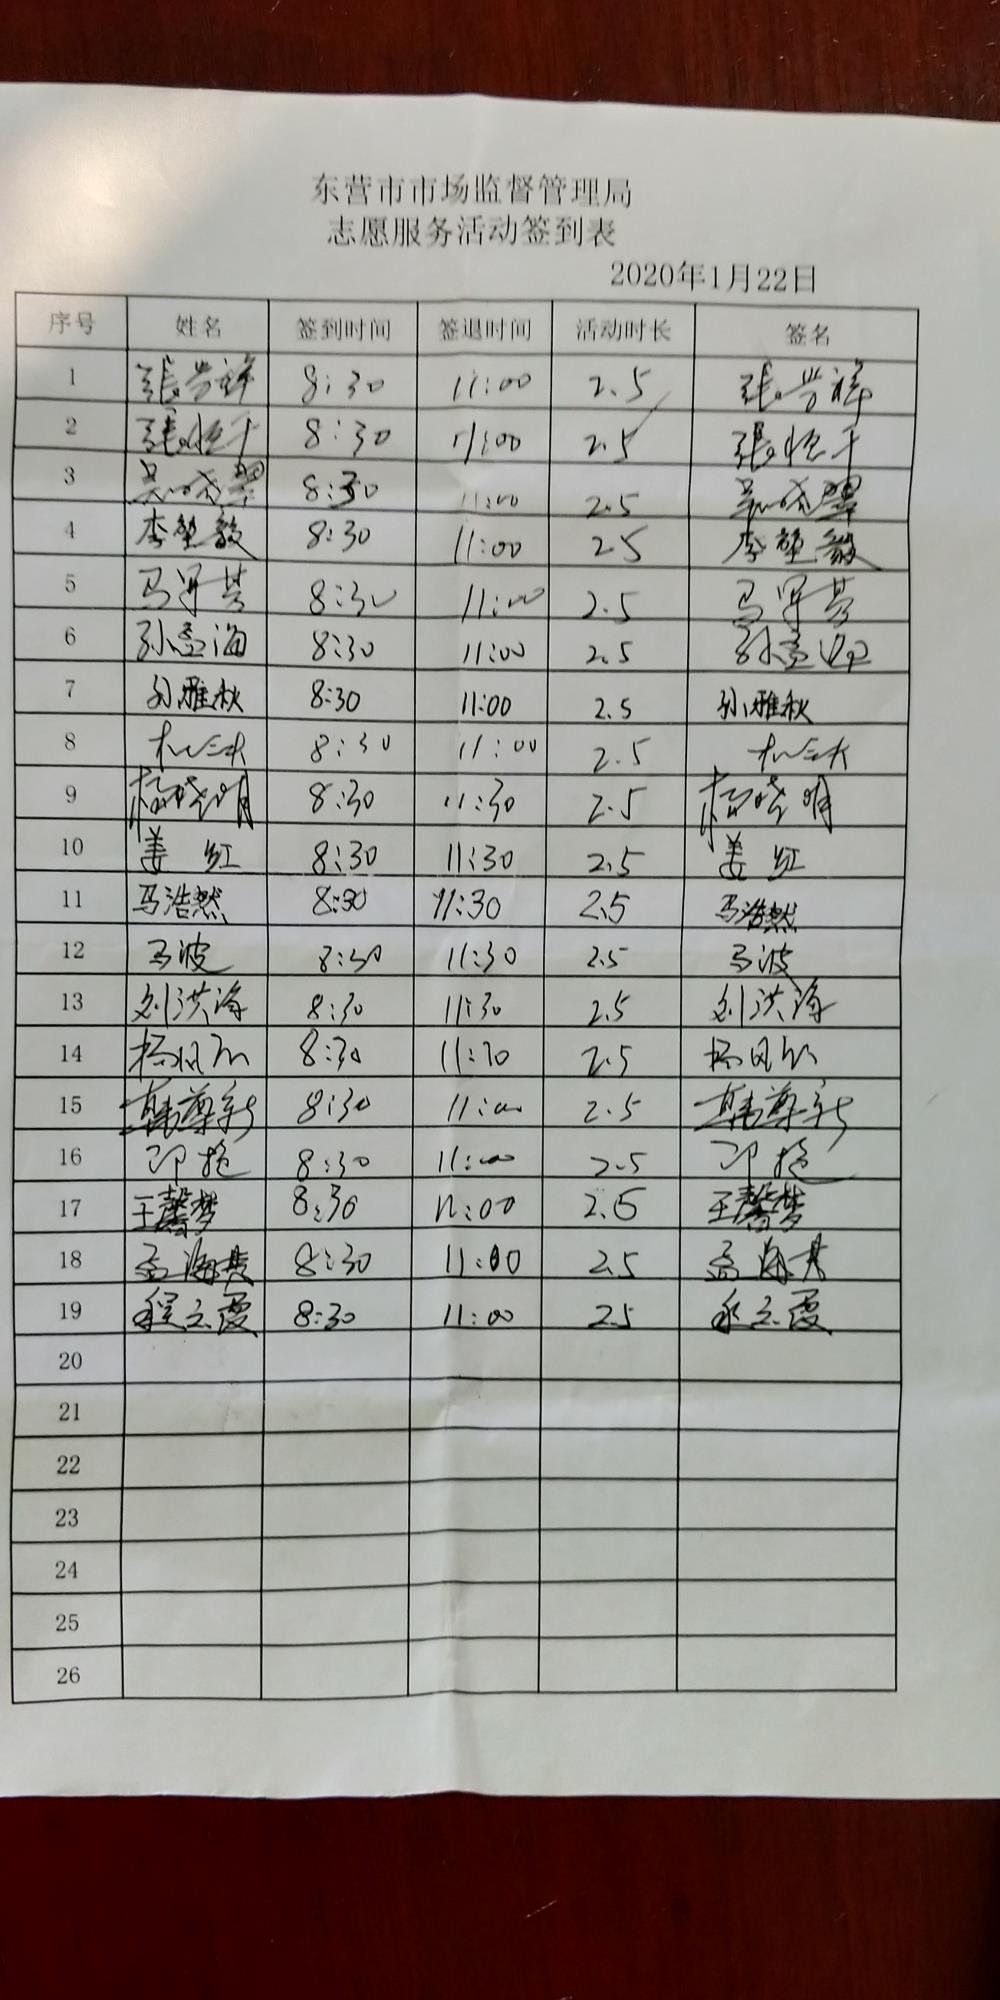 东营市市场监督管理局
志愿服务活动签到表
2020年1月22日
序号 姓名 签到时间 签退时间 活动时长 签名
1 8:30 11:00 2.5
2 8:30 11:00 2.5
3 8:30 11:00 2.5
4 李堃毅 8:30 11:00 2.5 李堃毅
5 8:30 11:00 2.5
6 孙孟海 8:30 11:00 2.5 孙孟
7 孙雅秋 8:30 11:00 2.5 孙雅秋
8 8:30 11:00 2.5
9 杨晓明 8:30 11:30 2.5 杨晓明
10 姜红 8:30 11:30 2.5 姜红
11 马浩然 8:30 11:30 2.5 马浩然
12 马波 8:30 11:30 2.5 马波
13 刘洪海 8:30 11:30 2.5 刘洪海
14 8:30 11:30 2.5
15 韩尊新 8:30 11:00 2.5 韩尊新
16 8:30 11:00 2.5
17 王馨梦 8:30 11:00 2.5 王馨梦
18 孟海 8:30 11:00 2.5 孟海
19 程立霞 8:30 11:00 2.5 程立霞
20
21
22
23
24
25
26